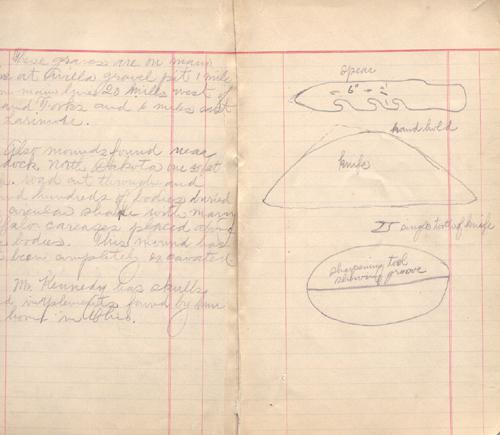 These graves are on main
at Arvilla gravel pit 1 mile
main line 20 miles west of
and Forks and 6 miles east
Larimore.
Also mounds found near
dock, North Dakota on east
road cut through and
hundreds of bodies buried
circular shape with many
falo carcases placed along
bodies. This mound has
been completely excavated
Mr. Kennedy has skulls
implements found by him
in Ohio.
spear
6"
hand hold
knife
single tooth of knife
sharpening tool
showing groove